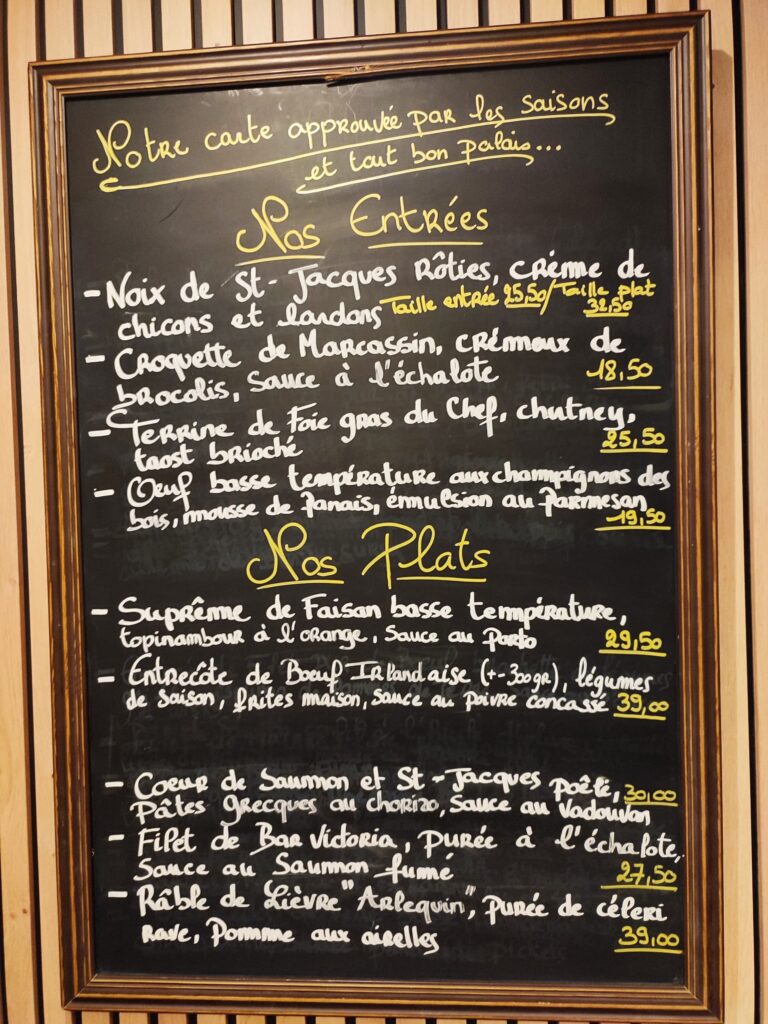 Notre carte approuvée par les saisons
et tout bon palais...
Nos Entrées
- Noix de St-Jacques Rôties, crème de
chicons et lardons Taille entrée 25,50/Taille plat
32,50
- Croquette de Marcassin, crémeux de
brocolis, sauce à l'échalote 18,50
- Terrine de Foie gras du Chef, chutney,
taost brioché 25,50
- Œuf basse température aux champignons des
bois, mousse de Panais, émulsion au Parmesan
19,50
Nos Plats
- Suprême de Faisan basse température,
topinambour à l'orange, sauce au Porto 29,50
- Entrecôte de Bœuf Irlandaise (+-300gr), légumes
de saison, frites maison, sauce au poivre concassé 39,00
- Coeur de Saumon et St-Jacques poêlé, 30,00
Pâtes grecques au chorizo, sauce au Vadouvan
- Filet de Bar Victoria, purée à l'échalote,
Sauce au Saumon fumé 27,50
- Râble de Lièvre "Arlequin", purée de céleri
rave, Pomme aux airelles 39,00